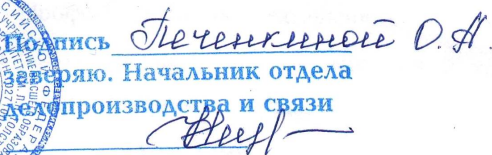 Подпись Печенкиной О.А.
заверяю. Начальник отдела
делопроизводства и связи